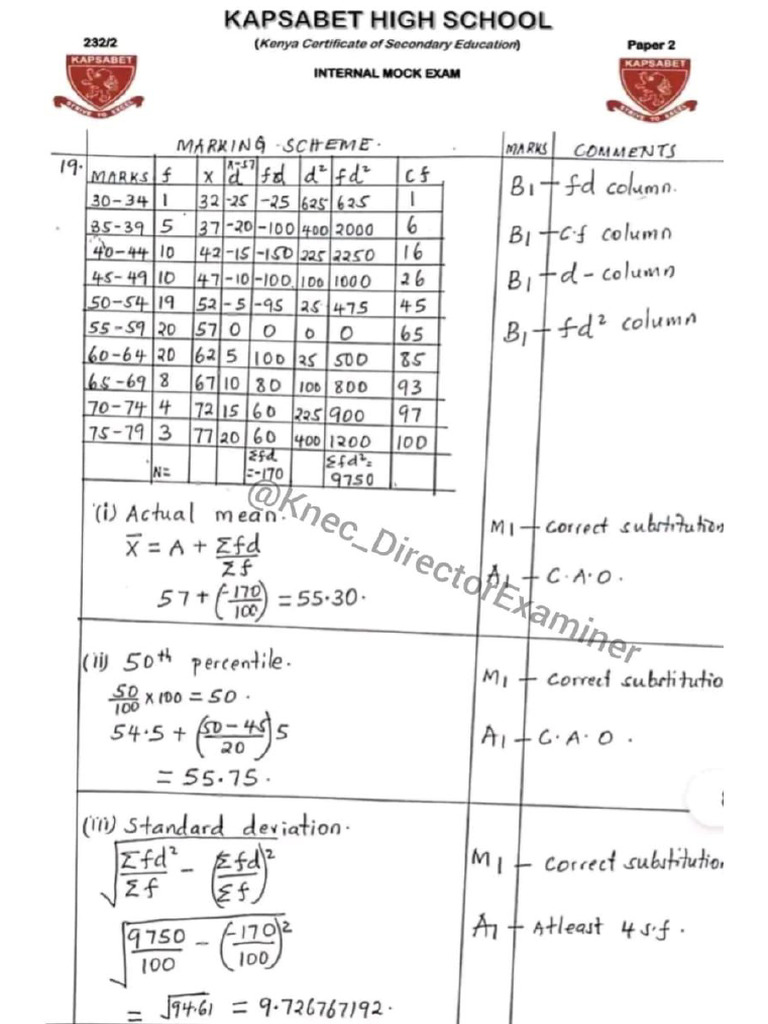 KAPSABET HIGH SCHOOL
232/2 (Kenya Certificate of Secondary Education) Paper 2
KAPSABET KAPSABET
INTERNAL MOCK EXAM
STRIVE TO EXCEL STRIVE TO EXCEL
MARKING SCHEME. MARKS COMMENTS
19. MARKS f x x-57 d fd d² fd² Cf
30-34 1 32 -25 -25 625 625 1 B1 - fd column.
35-39 5 37 -20 -100 400 2000 6 B1 - c.f column
40-44 10 42 -15 -150 225 2250 16
45-49 10 47 -10 -100 100 1000 26 B1 - d-column
50-54 19 52 -5 -95 25 475 45
55-59 20 57 0 0 0 0 65 B1 - fd² column
60-64 20 62 5 100 25 500 85
65-69 8 67 10 80 100 800 93
70-74 4 72 15 60 225 900 97
75-79 3 77 20 60 400 1200 100
N= Σfd =-170 Σfd²= 9750
@Knec_DirectorExaminer
(i) Actual mean. M1 - Correct substitution
x̄ = A + Σfd/Σf A1 - C.A.O.
57 + (-170/100) = 55.30.
(ii) 50th percentile. M1 - Correct substitutio
50/100 x 100 = 50.
54.5 + (50-45/20)5 A1 - C.A.O.
= 55.75.
(iii) Standard deviation.
√Σfd²/Σf - (Σfd/Σf)² M1 - Correct substitutio
√9750/100 - (-170/100)² A1 - Atleast 4 s.f.
= √94.61 = 9.726767192.